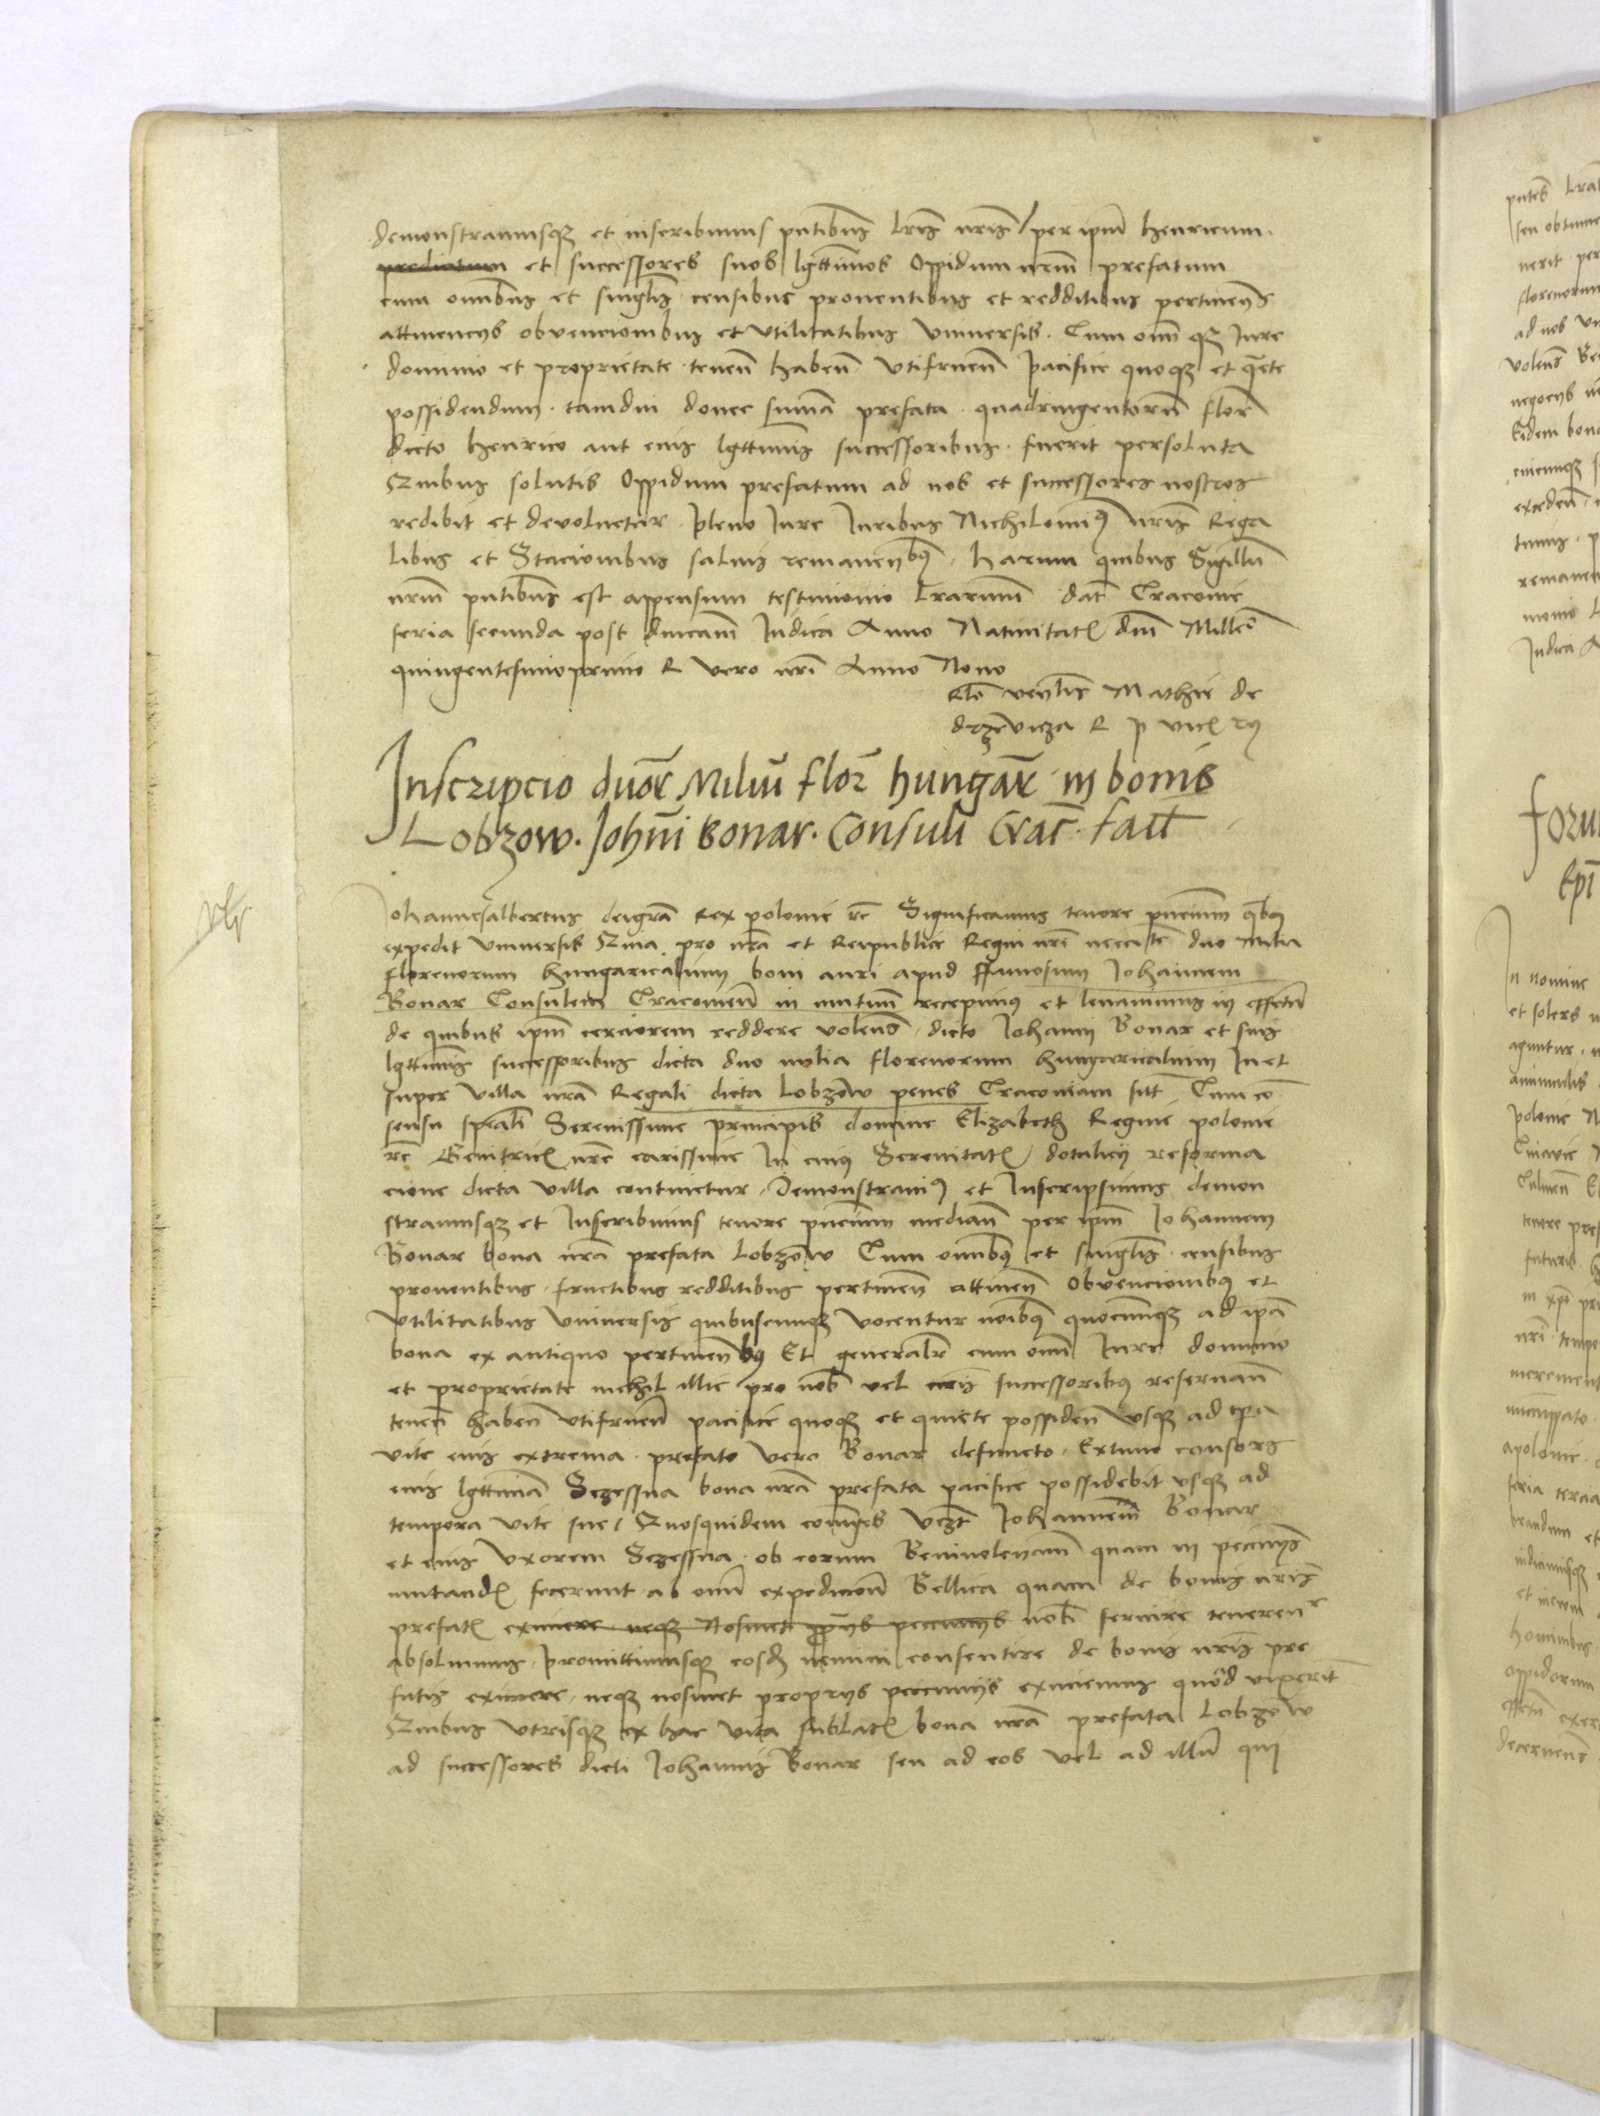 demonstramusq; et inscribimus pntibus lris nris / per ipm henricum
predictum et successores suos lgttimos Oppidum nrm prefatum
cum omnibus et singlis censibus proventibus et redditibus pertinencys
attinencys obvencionibus et utilitatibus universis. Cum omi q; Iure
dominio et proprietate tenen haben utifruen pacifice quoq; et quete
possidendum tamdiu donec suma prefata quadringentorum flor
dicto henrico aut eius lgttimis successoribus fuerit persoluta
Quibus solutis Oppidum prefatum ad nos et successores nostros
redibit et devolvetur pleno Iure Iuribus Nichilomi9 nris Rega
libus et Stacionibus salvis remanenbus. harum quibus Sigillu
nrm pntibus est appensum testimonio lrarum dat Cracovie
feria secunda post dnicam Iudica Anno Nativitatis dni Millesi
quingentesimoprimo R vero nri Anno Nono
Rlo venlis Mathie de
drzeviza R p vicz ry
Inscripcio duor Miliu flor hungar in bonis
Lobzow. Johni Bonar. Consuli Crac. fact
Johannesalbertus deigra Rex polonie rc Significamus tenore pncium qbus
expedit universis Quia pro nra et Reipublice Regni nri necite duo Milia
florenorum hungaricalium boni auri apud ffamosum Johannem
Bonar Consulem Cracovien in mutuum recepimus et levavimus in effectu
de quibus ipm cerciorem reddere volens dicto Johanni Bonar et suis
lgttimis successoribus dicta duo milia florenorum hungaricalium In et
super villa nra Regali dicta Lobzow penes Cracoviam sitt Cum co
sensu speali Serenissime principis domine Elizabeth Regine polonie
rc Genitricis nre carissime In cuius Serenitatis dotalicy reforma
cione dicta villa continetur. Demonstravi9 et Inscripsimus demon
stramusq; et Inscribimus tenore pncium median per ipm Johannem
Bonar bona nra prefata Lobzow Cum omibus et singlis censibus
proventibus fructibus redditibus pertinen attinen obvencionibus et
Utilitatibus Universis quibuscumq; vocentur noibus quocumq; ad ipa
bona ex antiquo pertinenbus Et generalr cum omi Iure dominio
et proprietate nichil illic pro nob vel nris successoribus reservan
tenen haben utifruen pacifice quoq; et quiete possiden usq; ad tpa
vite eius extrema. prefato vero Bonar defuncto. Extunc consors
eius lgttima Szezessna bona nra prefata pacifice possidebit usq; ad
tempora vite sue / Quosquidem coniuges vczt Johannem Bonar
et eius uxorem Szezessna ob eorum Benivolenciam quam in pecunys
mutandis fecerunt ab omi expedicioni Bellica quam de bonis nris
prefatis eximere neq; Nosmet prprys pecunys nobi servire tenerenr
absolvimus. promittimusq; eosd nemini consentire de bonis nris pre
fatis eximere. neq; nosmet proprys pecunys eximemus quod vixerit
Quibus utrisq; ex hac vita sublatis bona nra prefata Lobzow
ad successores dicti Johannis Bonar seu ad eos vel ad illu qui